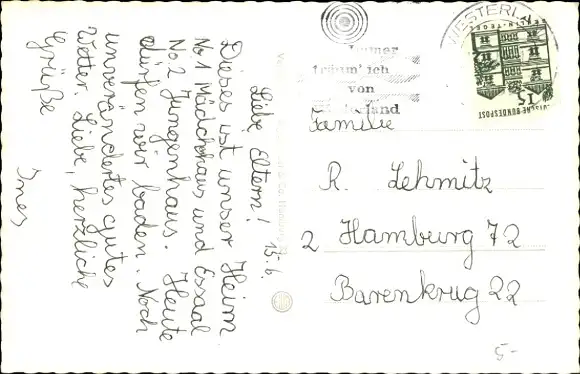 Liebe Eltern! 13.6.
Dieses ist unser Heim.
No.1 Mädchenhaus und Essaal
No.2 Jungenhaus. Heute
dürfen wir baden. Noch
unverändertes gutes
Wetter. Liebe, herzliche
Grüße
Ines
WESTERL
träum' ich
von
DEUTSCHE BUNDESPOST
15
Familie
R. Lehmitz
2 Hamburg 72
Barenkrug 22
5-